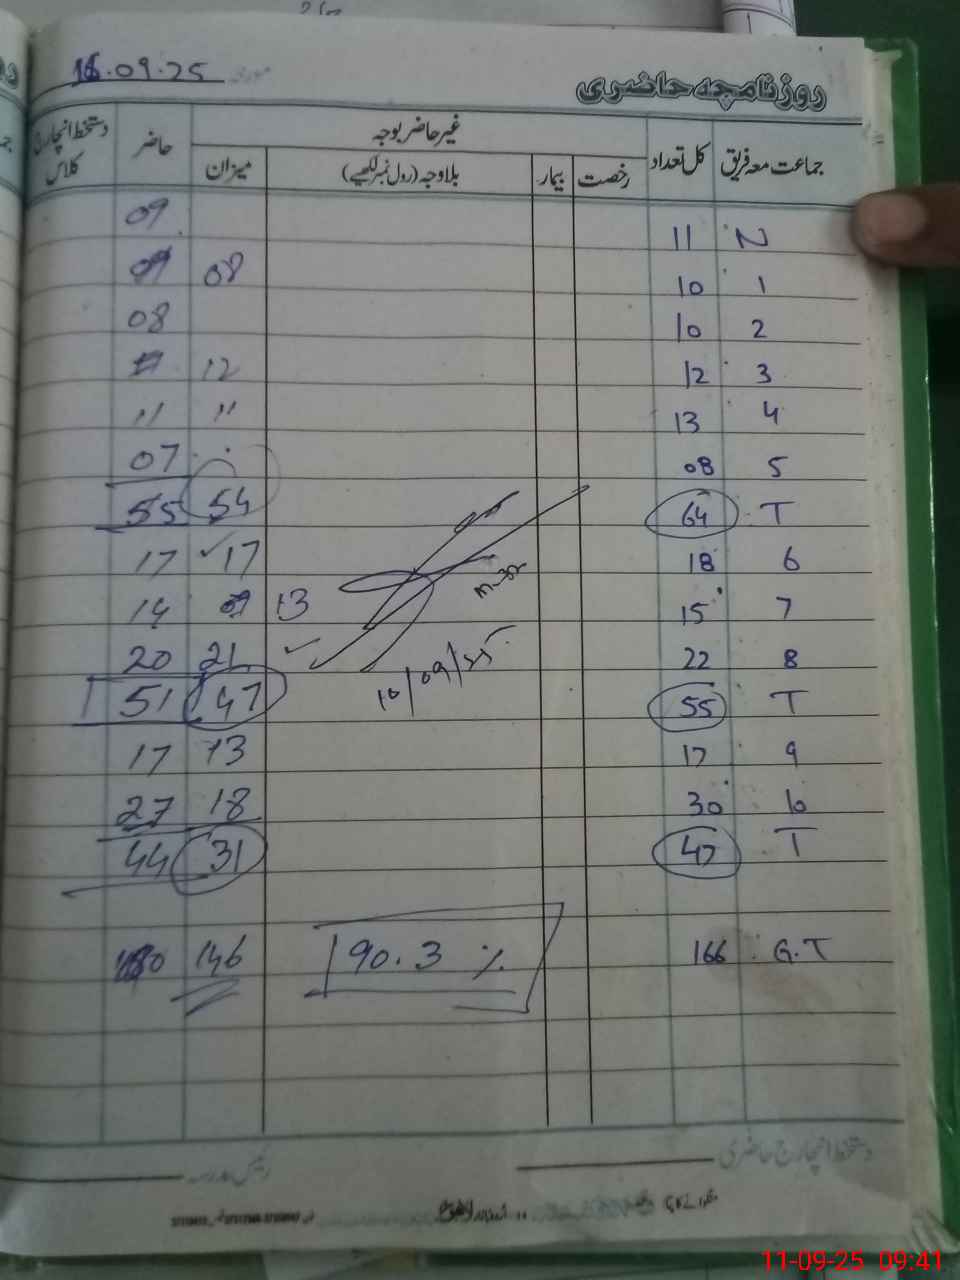 16.09.25 مورخہ
روزنامچہ حاضری
جماعت معہ فریق کل تعداد غیر حاضر بوجہ حاضر دستخط انچارج کلاس
رخصت بیمار بلاوجہ (رول نمبر لکھیے) میزان
N 11 09
1 10 08 09
2 10 08
3 12 12
4 13 11 11
5 08 07
T 64 54 55
6 18 17 17
7 15 13 09 14
8 22 21 20
10/09/25
T 55 47 51
9 17 13 17
10 30 18 27
T 47 31 44
G.T 166 90.3 % 146
دستخط انچارج حاضری رئیس مدرسہ
11-09-25 09:41